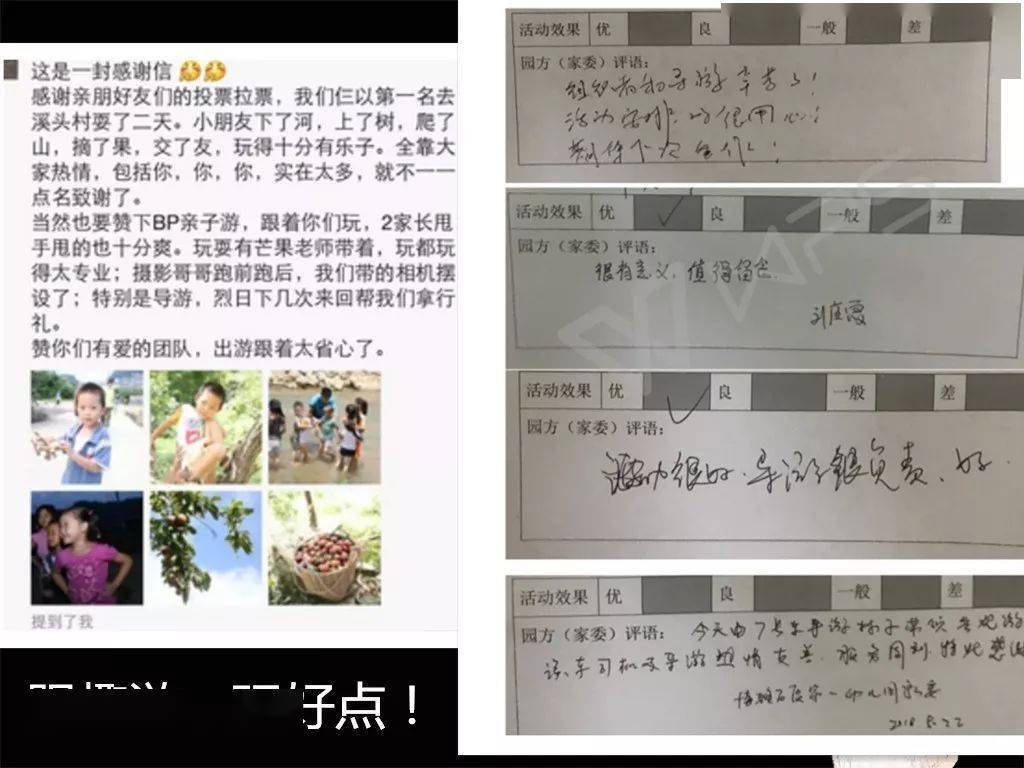 这是一封感谢信
感谢亲朋好友们的投票拉票，我们仨以第一名去
溪头村耍了二天。小朋友下了河，上了树，爬了
山，摘了果，交了友，玩得十分有乐子。全靠大
家热情，包括你，你，你，实在太多，就不一一
点名致谢了。
当然也要赞下BP亲子游，跟着你们玩，2家长甩
手甩的也十分爽。玩耍有芒果老师带着，玩都玩
得太专业；摄影哥哥跑前跑后，我们带的相机摆
设了；特别是导游，烈日下几次来回帮我们拿行
礼。
赞你们有爱的团队，出游跟着太省心了。
提到了我
好点！
活动效果 优 良 一般 差
园方（家委）评语：
组织者和导游辛苦了！
活动安排
很用心！
期待下次合作！
活动效果 优 良 一般 差
园方（家委）评语：
很有意义，值得留念
活动效果 优 良 一般 差
园方（家委）评语：
活动很好、导游很负责、好
活动效果 优 良 一般 差
园方（家委）评语： 今天由7号车导游
司机及导游热情友善，服务周到，特此感谢
2018.5.22
WPS